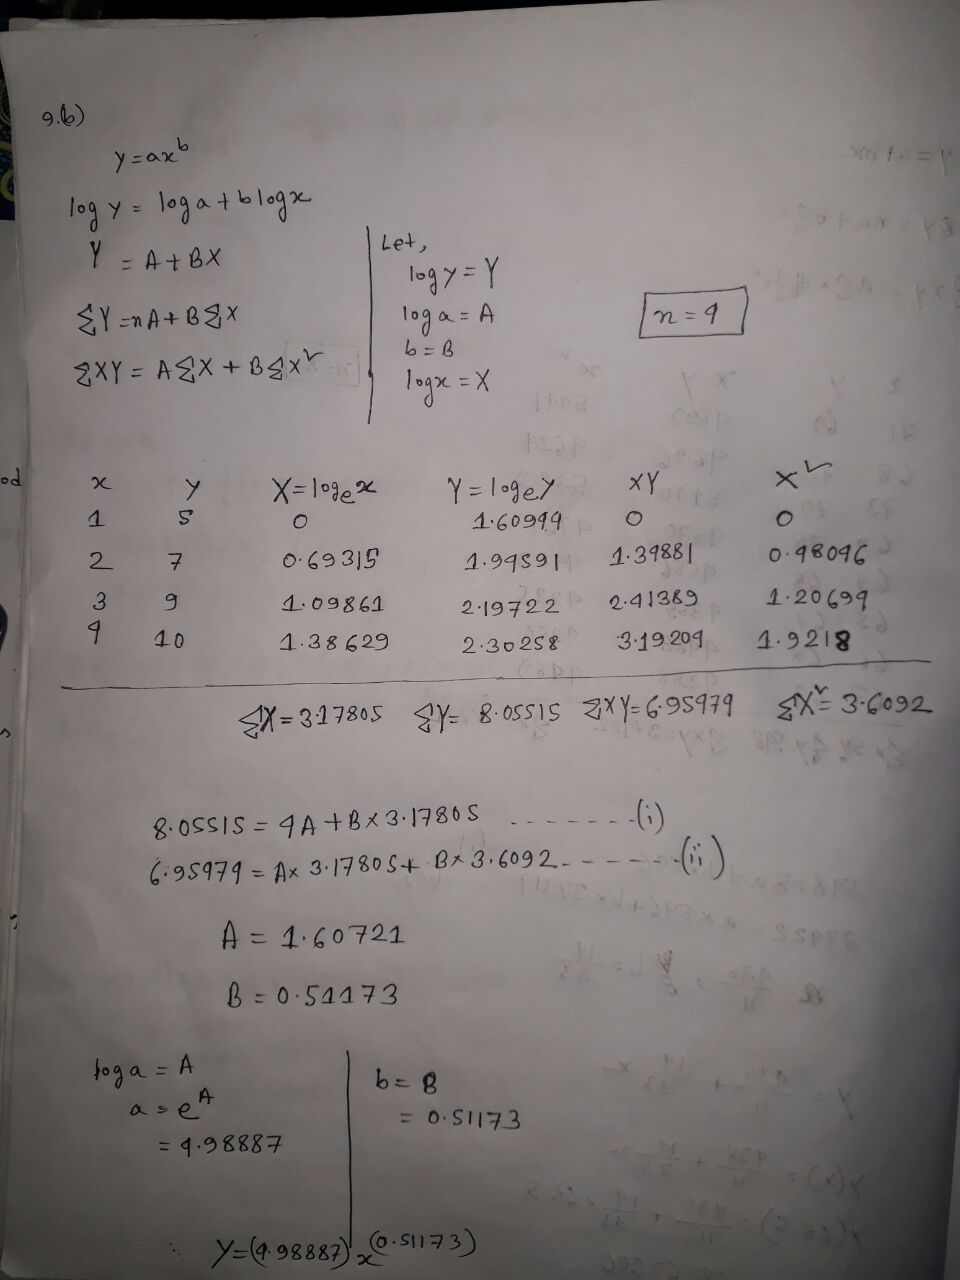 9.b)
y = ax^b
log y = log a + b log x
Y = A + BX
ΣY = nA + BΣX
ΣXY = AΣX + BΣX²
Let,
log y = Y
log a = A
b = B
log x = X
n = 4
x y X = logₑx Y = logₑy XY X²
1 5 0 1.60944 0 0
2 7 0.69315 1.94591 1.34881 0.48046
3 9 1.09861 2.19722 2.41389 1.20694
4 10 1.38629 2.30258 3.19204 1.9218
ΣX = 3.17805 ΣY = 8.05515 ΣXY = 6.95474 ΣX² = 3.6092
8.05515 = 4A + B × 3.17805 ------- (i)
6.95474 = A × 3.17805 + B × 3.6092 ------ (ii)
A = 1.60721
B = 0.51173
log a = A
a = e^A
= 4.98887
b = B
= 0.51173
∴ y = (4.98887) x^(0.51173)